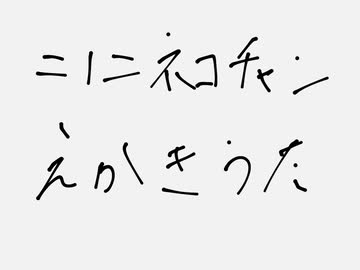 ニーニネコチャン
えかきうた